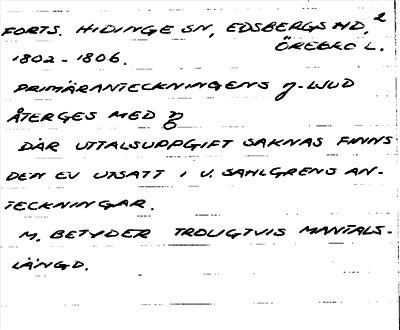 2
FORTS. HIDINGE SN, EDSBERGS HD,
ÖREBRO L.
1802-1806.
PRIMÄRANTECKNINGENS J-LJUD
ÅTERGES MED
DÄR UTTALSUPPGIFT SAKNAS FINNS
DEN EV UTSATT I V. SAHLGRENS AN-
TECKNINGAR.
M. BETYDER TROLIGTVIS MANTALS-
LÄNGD.